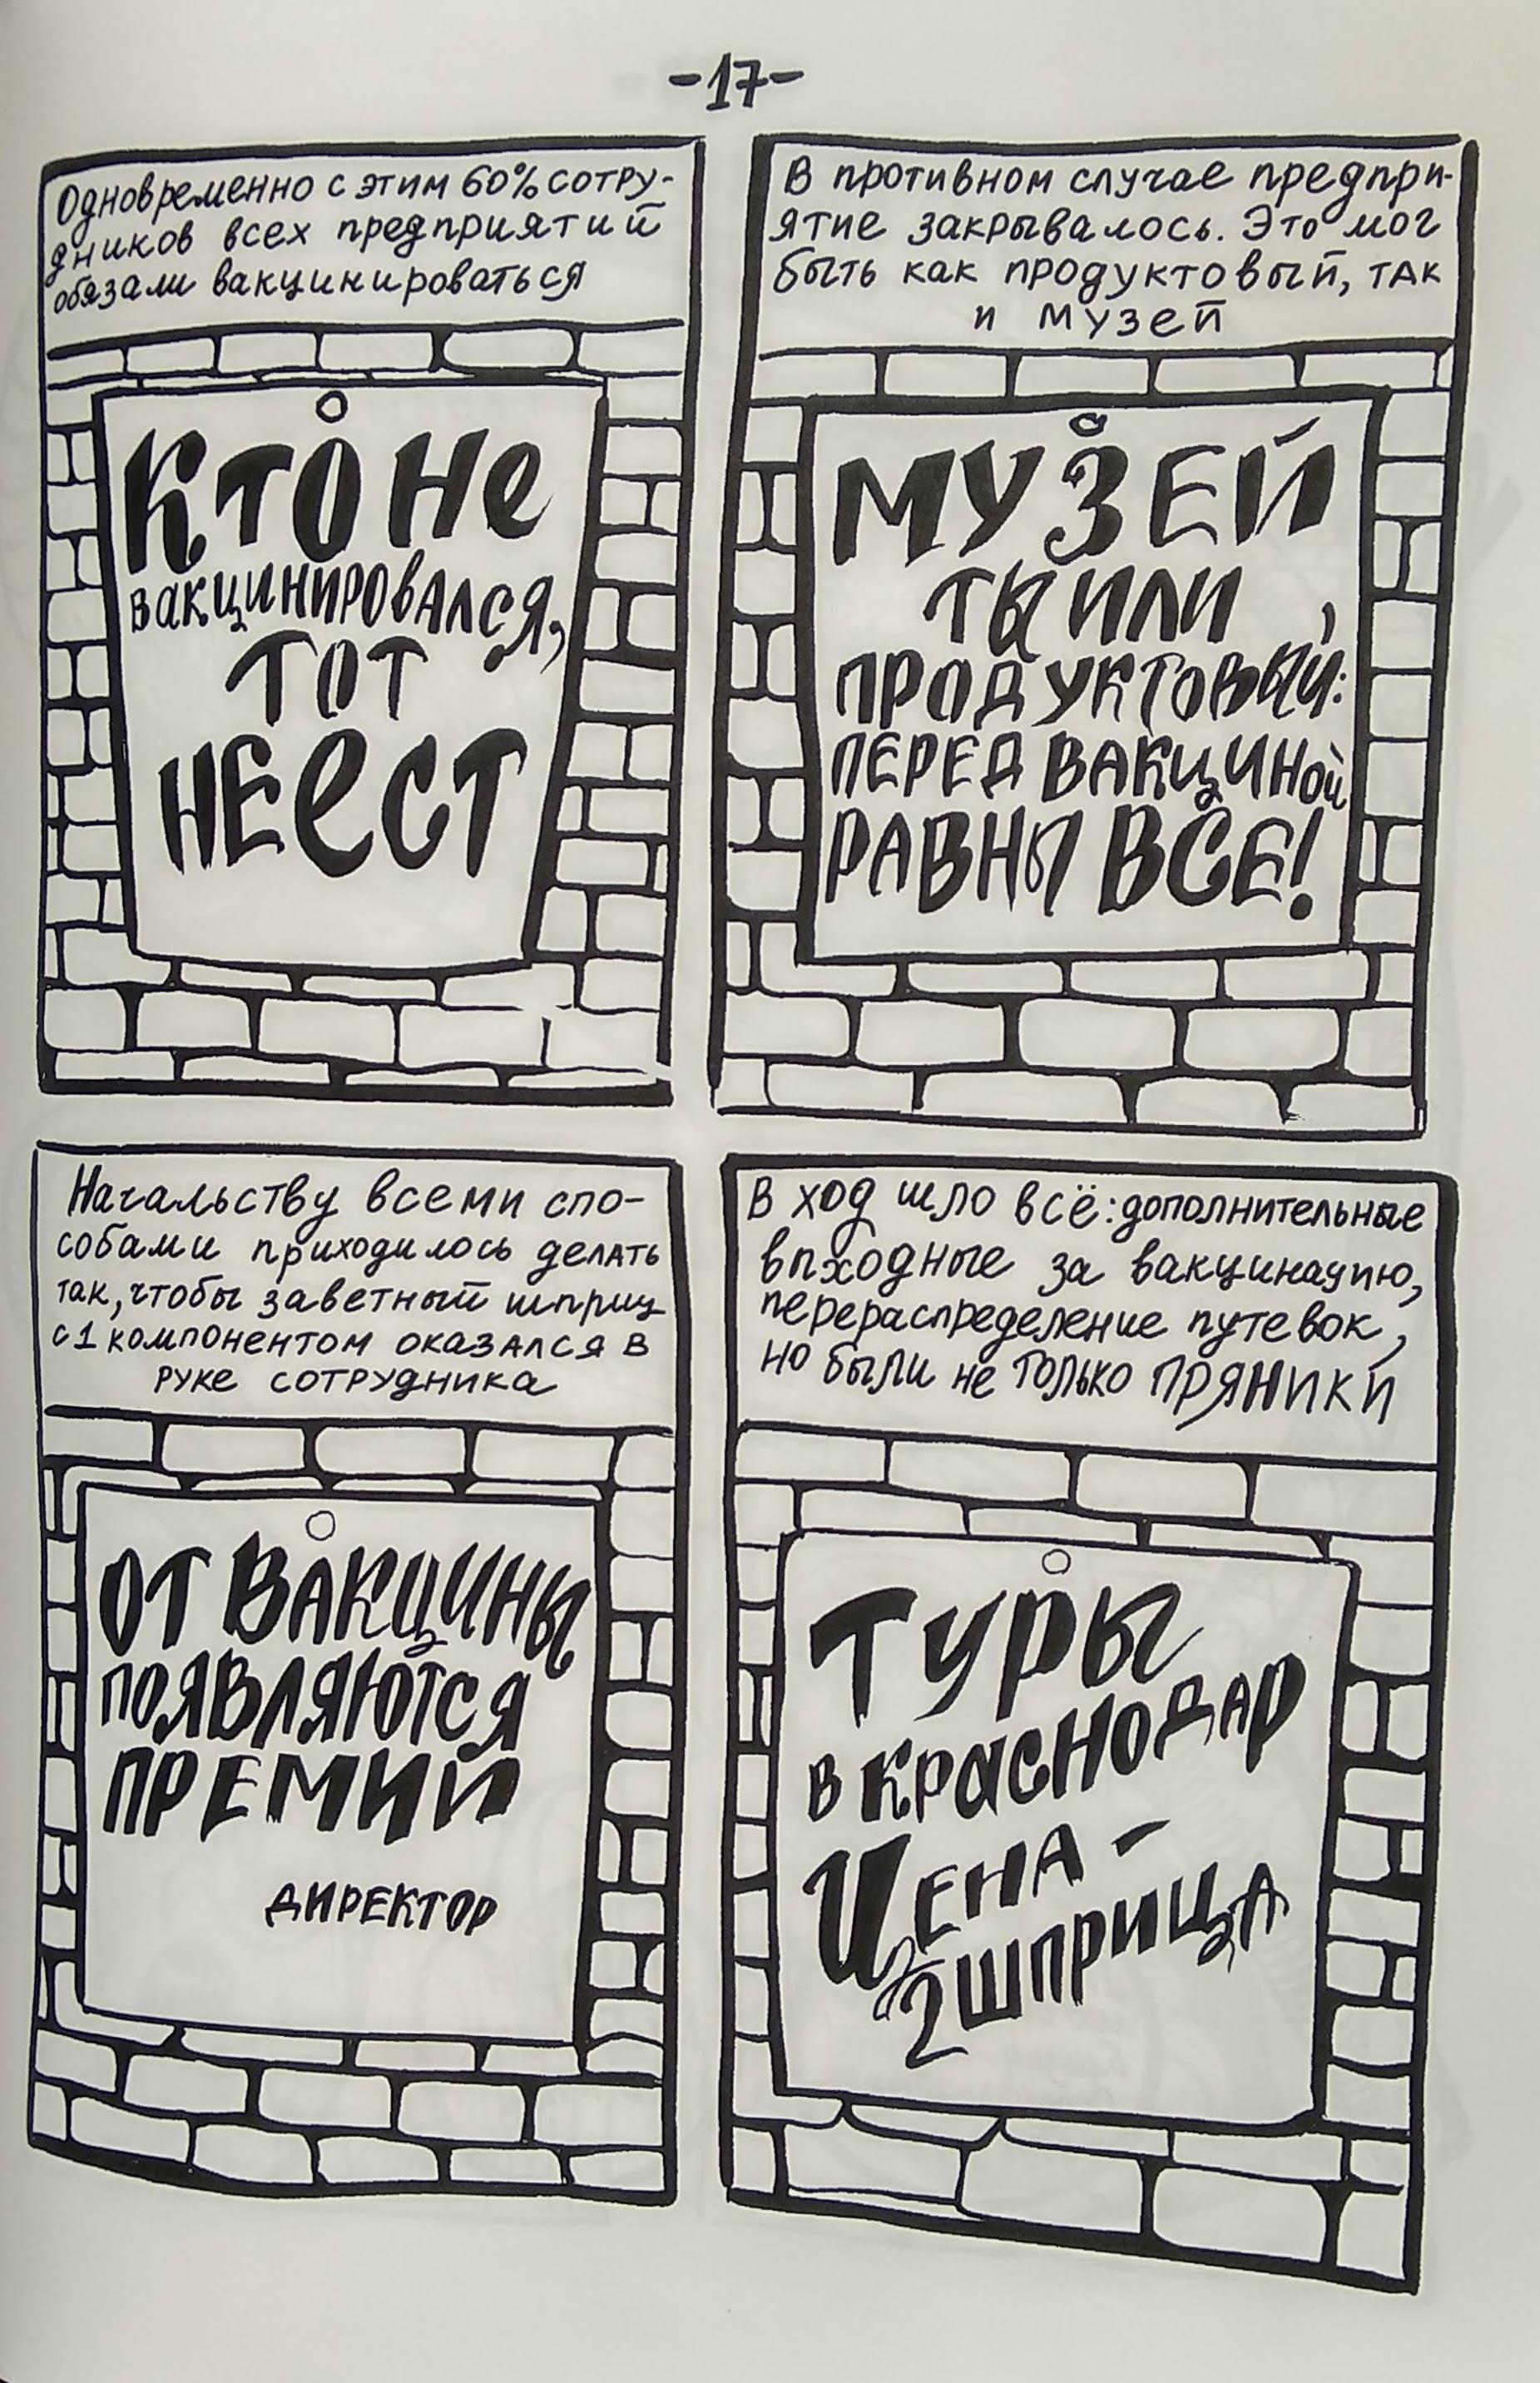 -17-
Одновременно с этим 60% сотру-
дников всех предприятий
обязали вакцинироваться
КТО НЕ
ВАКЦИНИРОВАЛСЯ,
ТОТ
НЕ ЕСТ
В противном случае предпри-
ятие закрывалось. Это мог
быть как продуктовый, так
и музей
МУЗЕЙ
ТЫ ИЛИ
ПРОДУКТОВЫЙ:
ПЕРЕД ВАКЦИНОЙ
РАВНЫ ВСЕ!
Начальству всеми спо-
собами приходилось делать
так, чтобы заветный шприц
с 1 компонентом оказался в
руке сотрудника
ОТ ВАКЦИНЫ
ПОЯВЛЯЮТСЯ
ПРЕМИИ
ДИРЕКТОР
В ход шло всё: дополнительные
выходные за вакцинацию,
перераспределение путевок,
но были не только ПРЯНИКИ
ТУРЫ
В КРАСНОДАР
ЦЕНА -
2 ШПРИЦА